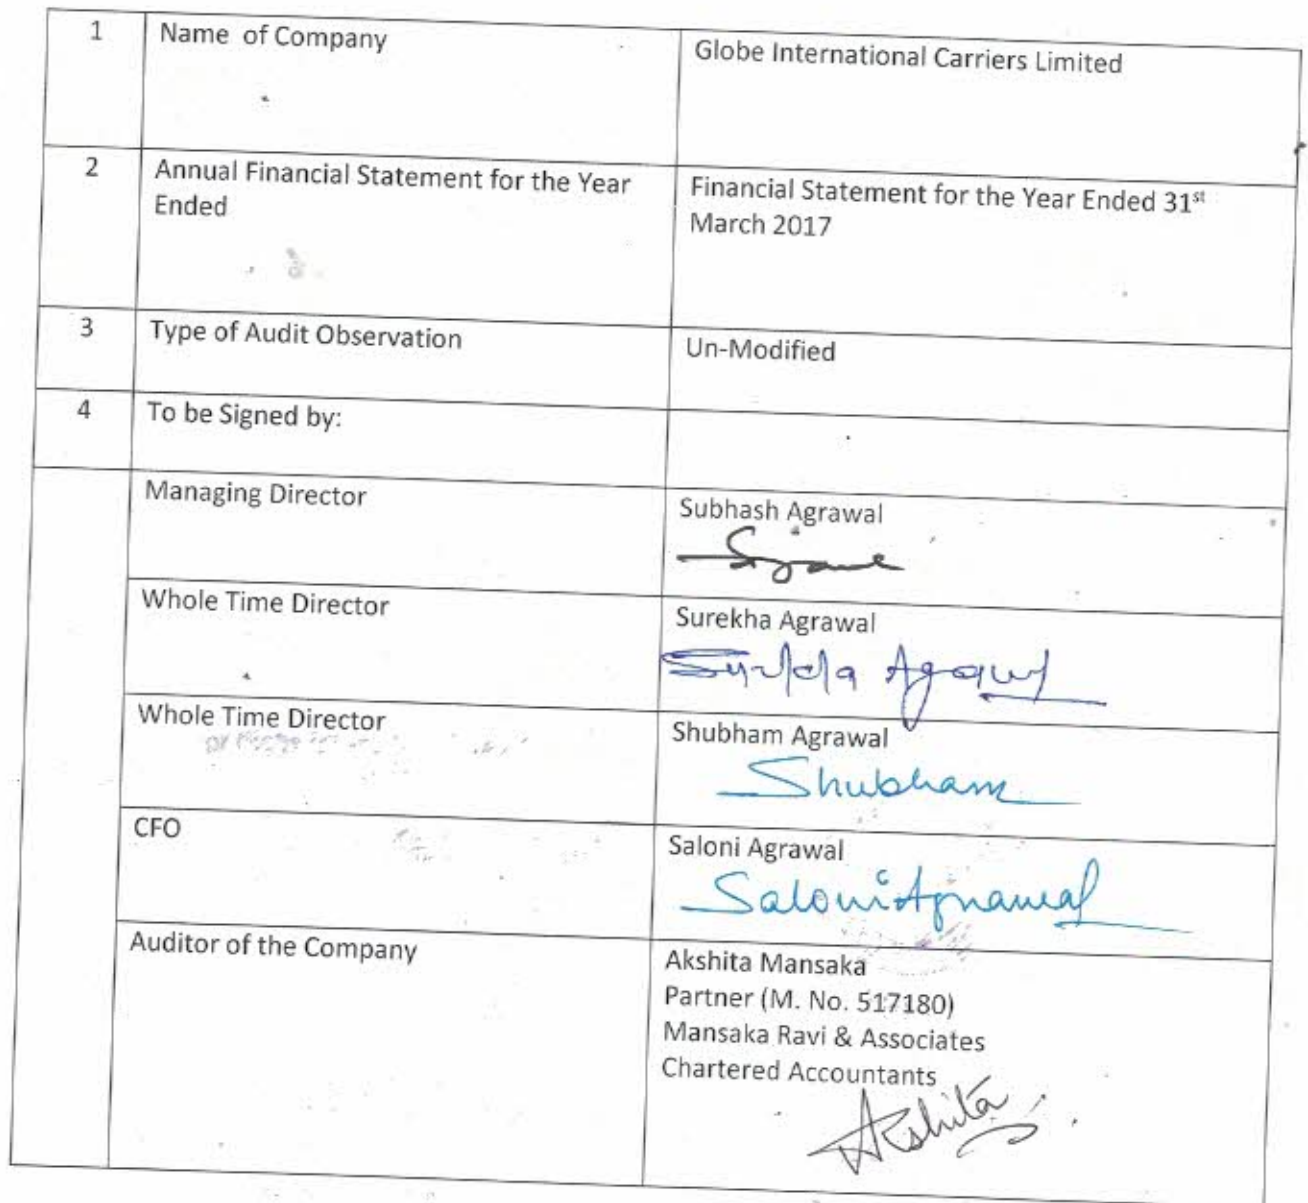 1 Name of Company Globe International Carriers Limited
2 Annual Financial Statement for the Year Ended Financial Statement for the Year Ended 31st March 2017
3 Type of Audit Observation Un-Modified
4 To be Signed by:
Managing Director Subhash Agrawal
Whole Time Director Surekha Agrawal
Surekha Agrawal
Whole Time Director Shubham Agrawal
Shubham
CFO Saloni Agrawal
Saloni Agrawal
Auditor of the Company Akshita Mansaka
Partner (M. No. 517180)
Mansaka Ravi & Associates
Chartered Accountants
Akshita